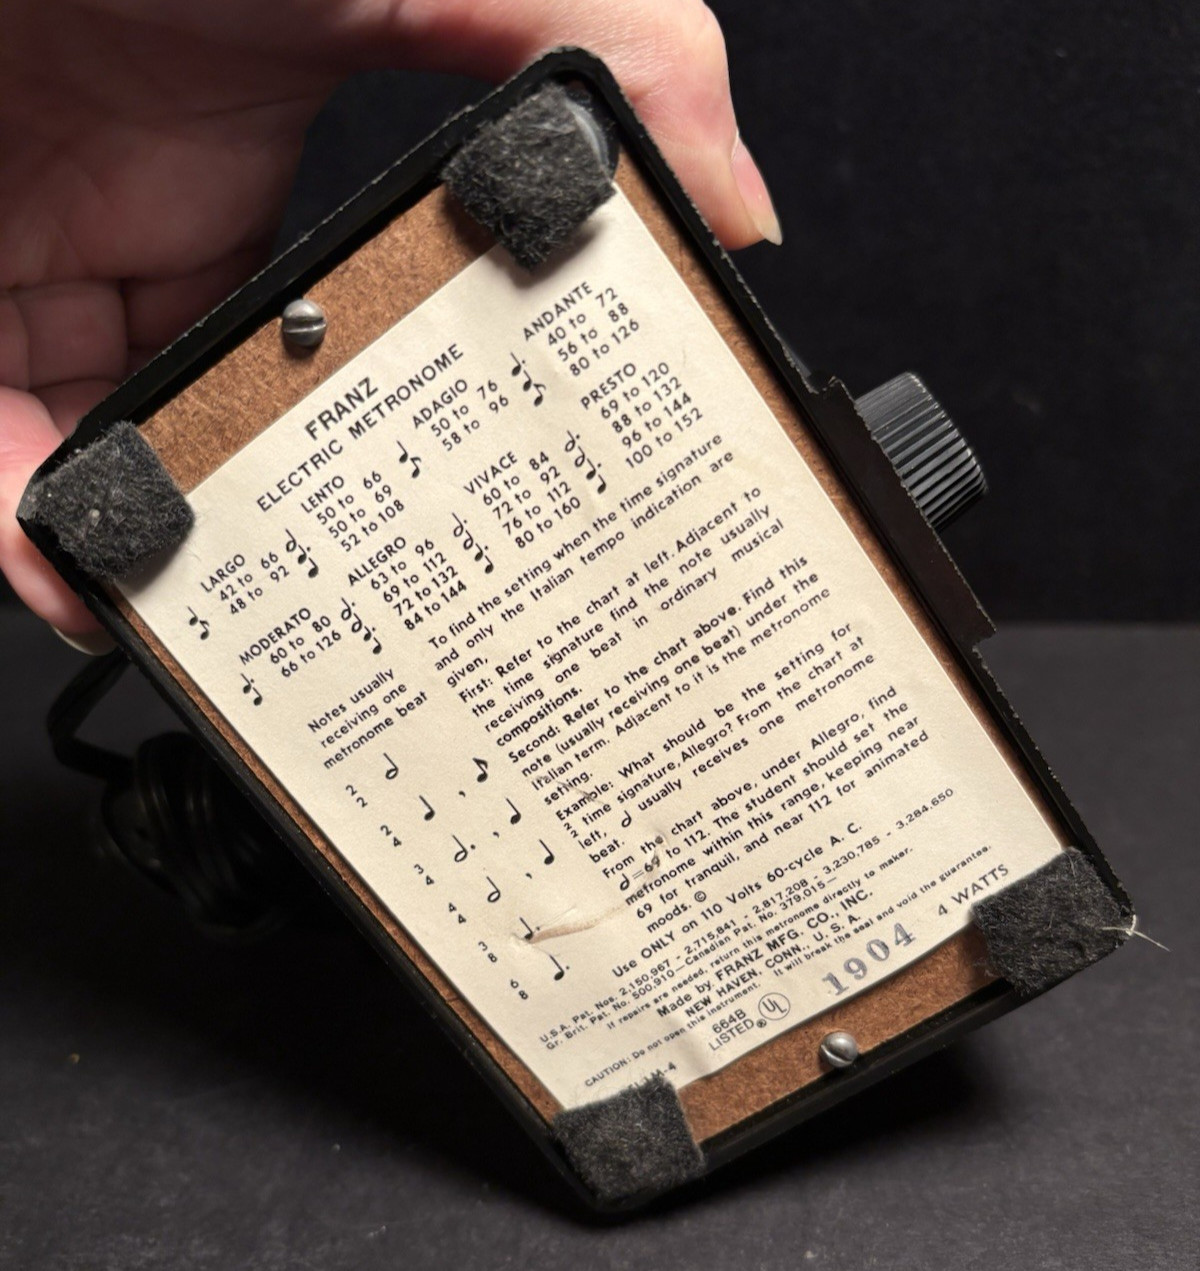 FRANZ
ELECTRIC METRONOME
LARGO
42 to 66
48 to 92
LENTO
50 to 66
50 to 69
52 to 108
ADAGIO
50 to 76
58 to 96
ANDANTE
40 to 72
56 to 88
80 to 126
MODERATO
60 to 80
66 to 126
ALLEGRO
63 to 96
69 to 112
72 to 132
84 to 144
VIVACE
60 to 84
72 to 92
76 to 112
80 to 160
PRESTO
69 to 120
88 to 132
96 to 144
100 to 152
Notes usually
receiving one
metronome beat
2
2
2
4
3
4
4
4
3
8
6
8
To find the setting when the time signature
and only the Italian tempo indication are
given,
First: Refer to the chart at left. Adjacent to
the time signature find the note usually
receiving one beat in ordinary musical
compositions.
Second: Refer to the chart above. Find this
note (usually receiving one beat) under the
Italian term. Adjacent to it is the metronome
setting.
Example: What should be the setting for
2/2 time signature, Allegro? From the chart at
left, 𝅗𝅥 usually receives one metronome
beat.
From the chart above, under Allegro, find
𝅗𝅥 = 69 to 112. The student should set the
metronome within this range, keeping near
69 for tranquil, and near 112 for animated
moods. ©
Use ONLY on 110 Volts 60-cycle A. C.
U.S.A. Pat. Nos. 2,150,967 - 2,715,841 - 2,817,208 - 3,230,785 - 3,284,650
Gr. Brit. Pat. No. 500,910—Canadian Pat. No. 379,015—
If repairs are needed, return this metronome directly to maker.
Made by FRANZ MFG. CO., INC.
NEW HAVEN, CONN., U. S. A.
CAUTION: Do not open this instrument. It will break the seal and void the guarantee.
664B
LISTED UL ®
1904
4 WATTS
LM-4